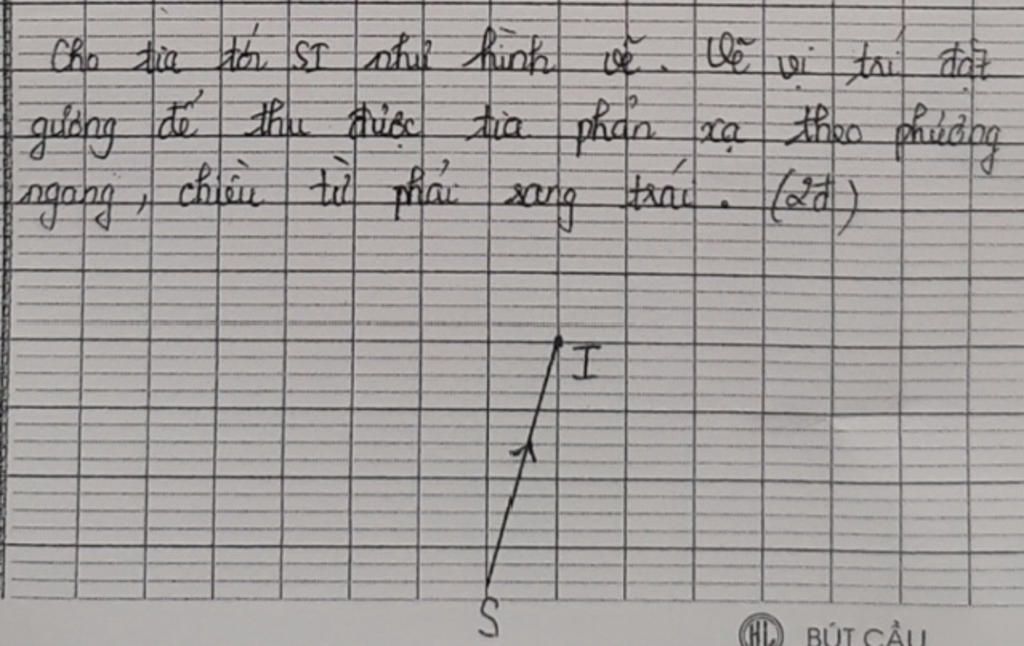 Cho tia tới SI như hình vẽ. Vẽ vị trí đặt
gương để thu được tia phản xạ theo phương
ngang, chiều từ phải sang trái. (2đ)
I
S
HL BÚT CẦU